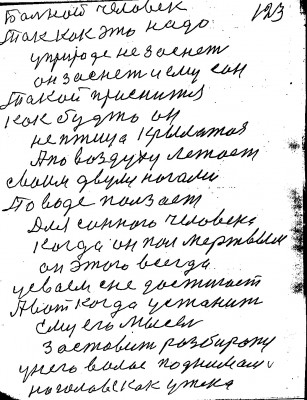 Банной человек 123
Так как это надо
у природе не заснет
он заснет и ему сон
Такой приснится
как будто он
не птица крылатая
А по воздуху летает
своим двумя ногами
По воде ползает
Для сонного человека
когда он пол мертвым
он этого всегда
усваем сне достигает
А вот когда устанит
ему его мысел
заставит розбирати
у него волос поднимаи
на голове как ужека